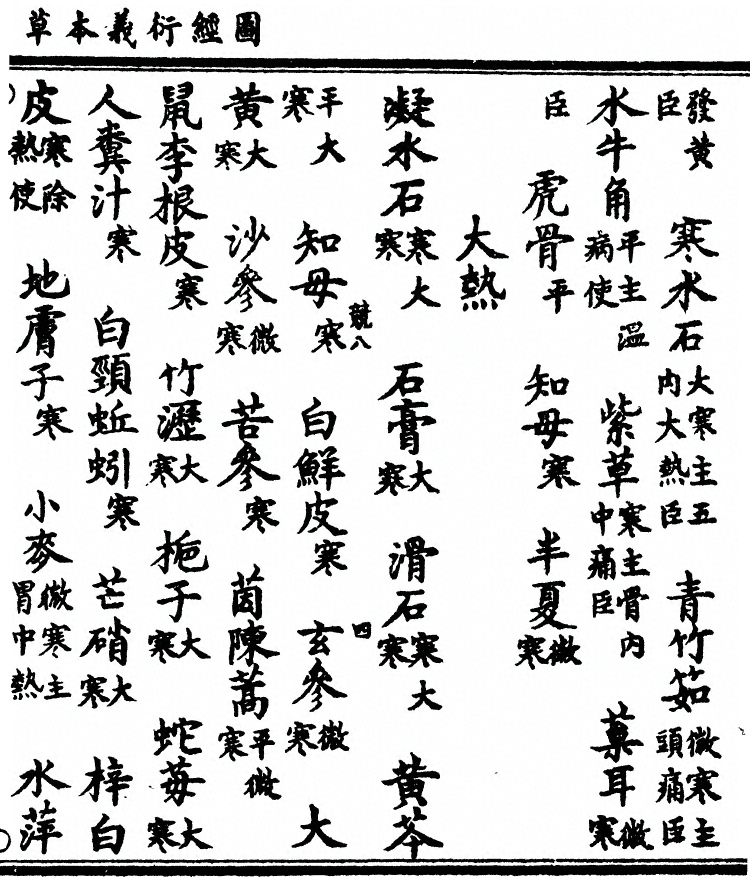 圖經衍義本草
發黃臣 寒水石 大寒主五內大熱臣 青竹茹 微寒主頭痛臣
水牛角 平主溫病使 紫草 寒主骨內中痛臣 菓耳 微寒
臣 虎骨 平 知母 寒 半夏 微寒
大熱
凝水石 寒大寒 石膏 大寒 滑石 寒大寒 黃芩
競八 四
平大寒 知母 寒 白鮮皮 寒 玄參 微寒 大
黃 大寒 沙參 微寒 苦參 寒 茵陳蒿 平微寒
鼠李根皮 寒 竹瀝 大寒 梔子 大寒 蛇苺 大寒
人糞汁 寒 白頸蚯蚓 寒 芒硝 大寒 梓白
皮 寒除熱使 地膚子 寒 小麥 微寒主胃中熱 水萍